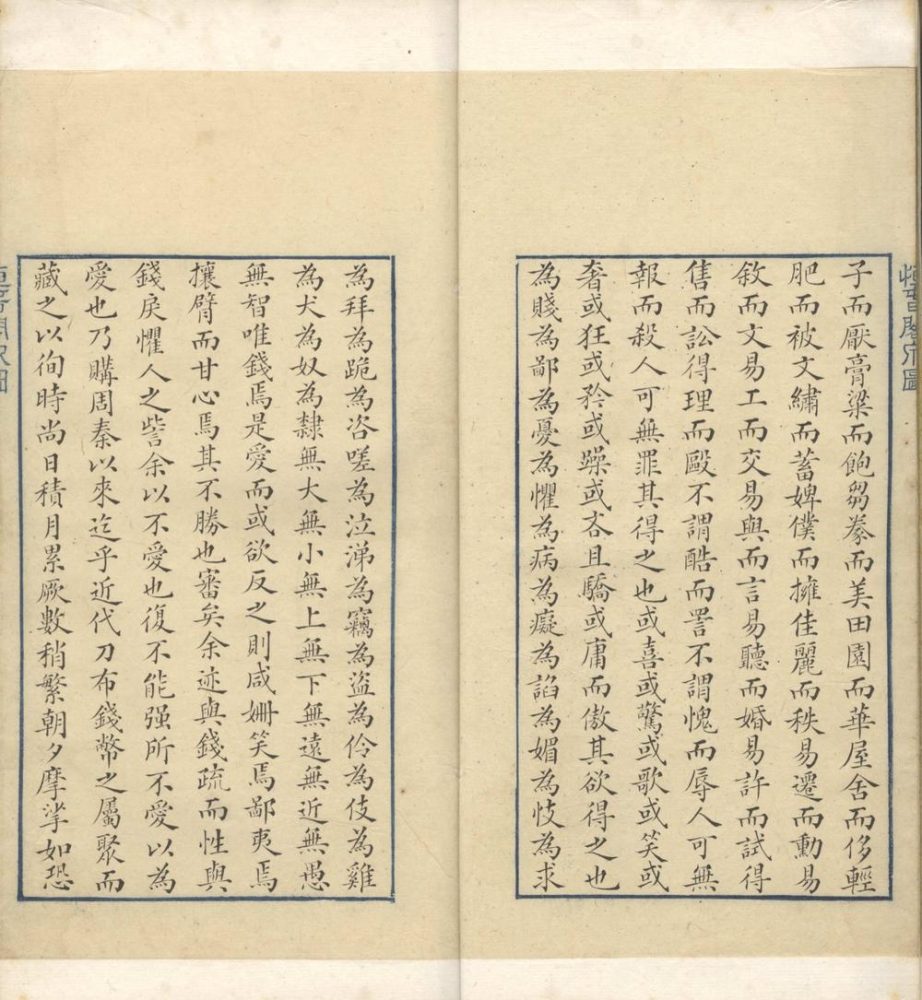 子而厭膏粱而飽芻豢而美田園而華屋舍而侈輕
肥而被文繡而蓄婢僕而擁佳麗而秩易遷而勳易
敘而文易工而交易與而言易聽而婚易許而試得
售而訟得理而毆不謂酷而詈不謂愧而辱人可無
報而殺人可無罪其得之也或喜或驚或歌或笑或
奢或狂或矜或躁或吝且驕或庸而傲其欲得之也
為賤為鄙為憂為懼為病為癡為諂為媚為忮為求
為拜為跪為咨嗟為泣涕為竊為盜為伶為伎為雞
為犬為奴為隸無大無小無上無下無遠無近無愚
無智唯錢焉是愛而或欲反之則咸姍笑焉鄙夷焉
攘臂而甘心焉其不勝也審矣余迹與錢疏而性與
錢戾懼人之訾余以不愛也復不能强所不愛以為
愛也乃購周秦以來迄乎近代刀布錢幣之屬聚而
藏之以徇時尚日積月累厥數稍繁朝夕摩挲如恐